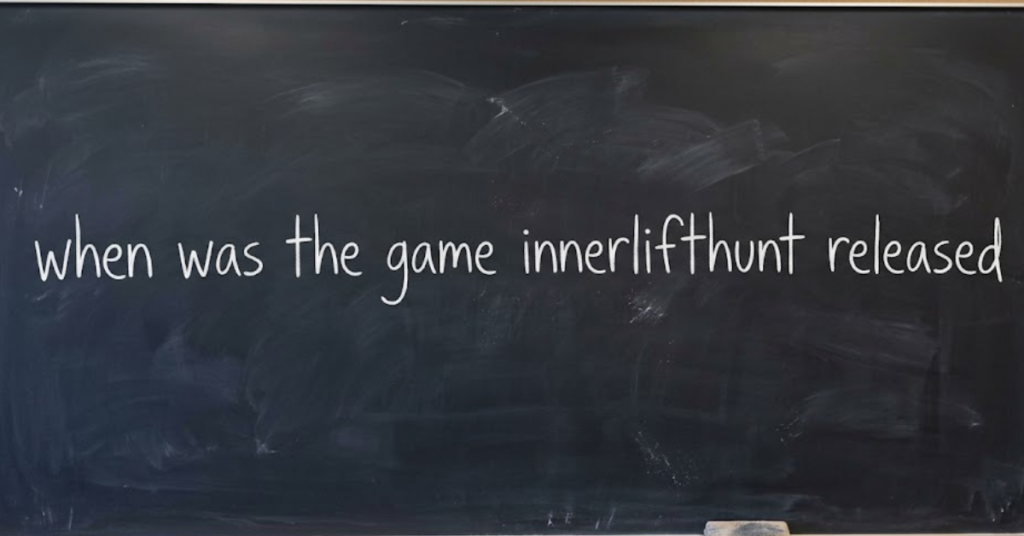 when was the game innerlifthunt released